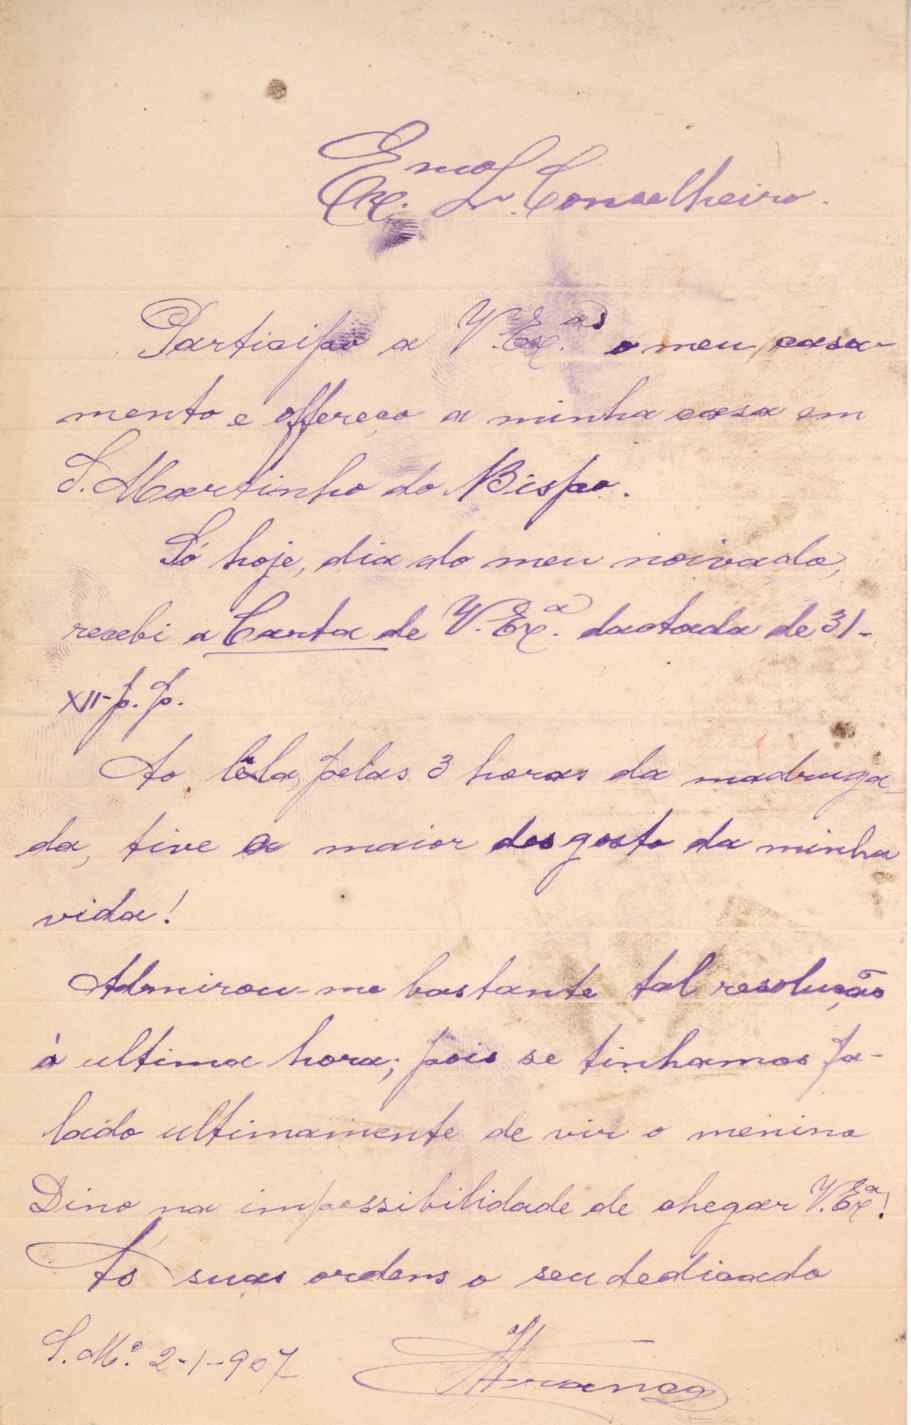 Exmo Sr. Conselheiro.
Participo a V. Exas o meu casa-
mento e offereço a minha casa em
S. Martinho do Bispo.
Só hoje, dia do meu noivado,
recebi a Carta de V. Exa. dactada de 31-
XII-p. p.
Ao lêla, pelas 3 horas da madruga-
da, tive o maior desgosto da minha
vida!
Admirou-me bastante tal resolução
á ultima hora; pois se tinhamos fa-
lado ultimamente de vir o menino
Dino na impossibilidade de chegar V. Exa!
Ás suas ordens o seu dedicado
S. Mo. 2-1-907